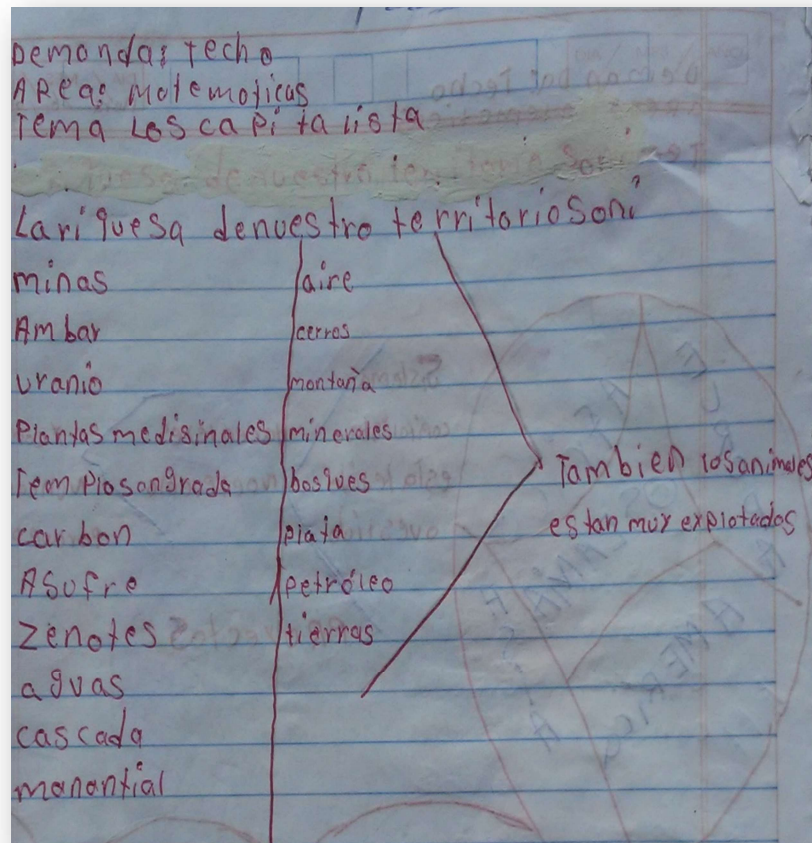 Demanda: Techo
Area: Matematicas
Tema Los capitalista
La riquesa de nuestro territorio son:
minas
Ambar
uranio
Plantas medisinales
Templo sangrada
carbon
Asufre
Zenotes
aguas
cascada
manantial
aire
cerros
montaña
minerales
bosques
plata
petróleo
tierras
Tambien los animales
estan muy explotados